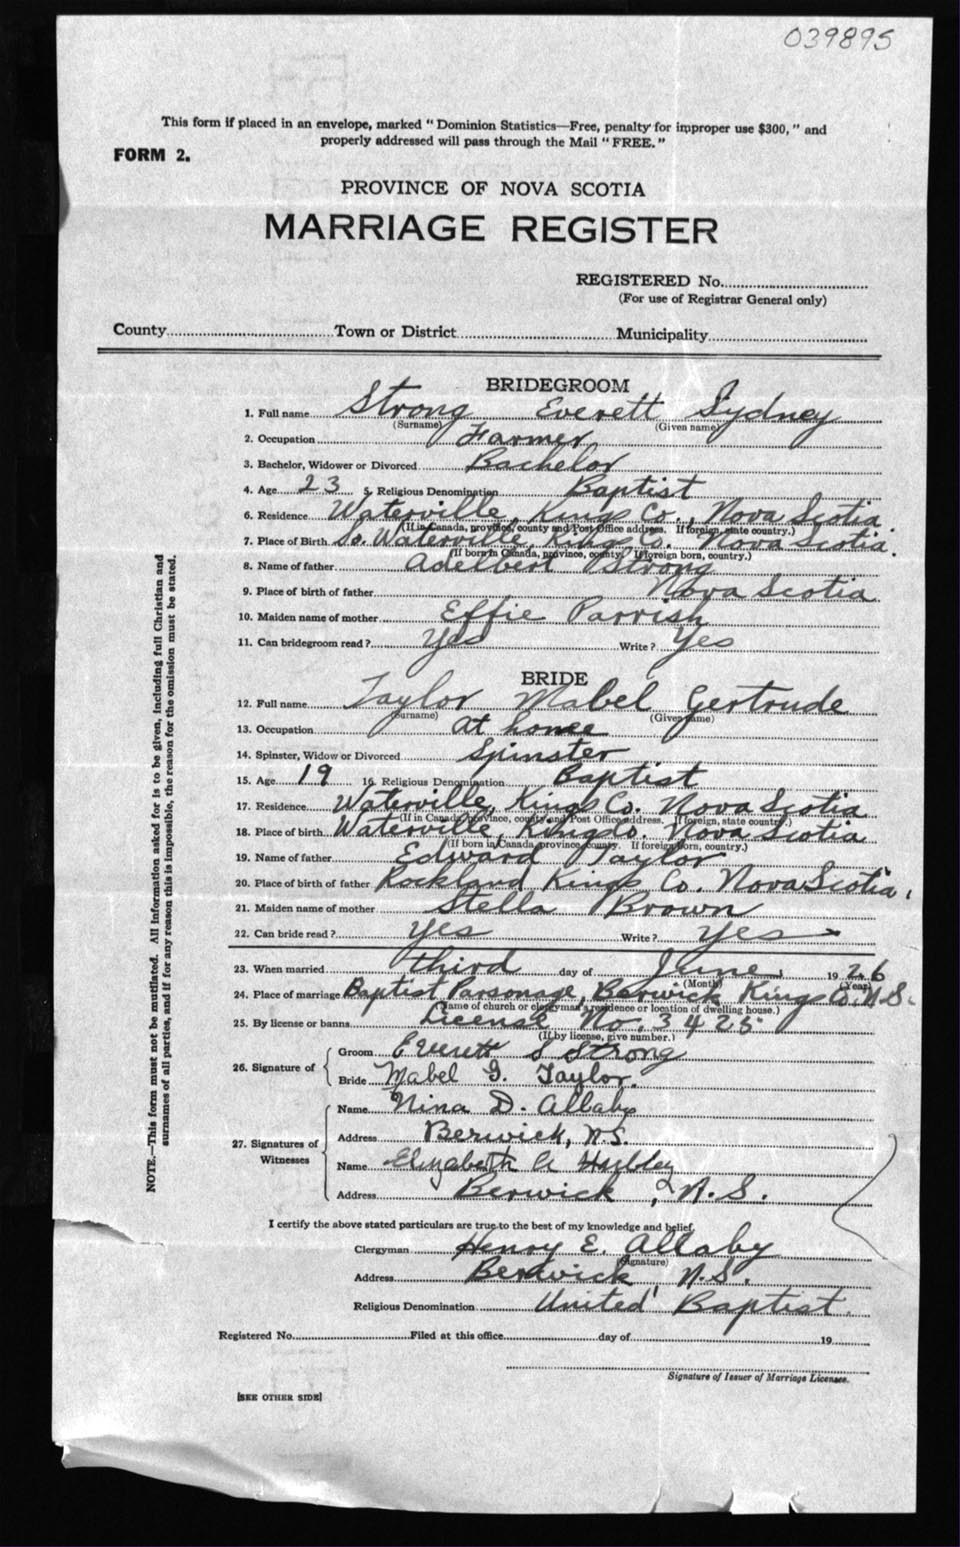 039895
This form if placed in an envelope, marked "Dominion Statistics—Free, penalty for improper use $300," and
properly addressed will pass through the Mail "FREE."
FORM 2.
PROVINCE OF NOVA SCOTIA
MARRIAGE REGISTER
REGISTERED No.
(For use of Registrar General only)
County Town or District Municipality
BRIDEGROOM
1. Full name Strong Everett Sydney
(Surname) (Given name)
2. Occupation Farmer
3. Bachelor, Widower or Divorced Bachelor
4. Age 23 5. Religious Denomination Baptist
6. Residence Waterville, Kings Co., Nova Scotia.
(If in Canada, province, county and Post Office address. If foreign, state country.)
7. Place of Birth So. Waterville, Kings Co. Nova Scotia.
(If born in Canada, province, county. If foreign born, country.)
8. Name of father Adelbert Strong
9. Place of birth of father Nova Scotia
10. Maiden name of mother Effie Parrish
11. Can bridegroom read? Yes Write? Yes
BRIDE
12. Full name Taylor Mabel Gertrude
(Surname) (Given name)
13. Occupation at home
14. Spinster, Widow or Divorced Spinster
15. Age 19 16. Religious Denomination Baptist
17. Residence Waterville, Kings Co. Nova Scotia
(If in Canada, province, county and Post Office address. If foreign, state country.)
18. Place of birth Waterville, Kings Co. Nova Scotia
(If born in Canada, province, county. If foreign born, country.)
19. Name of father Edward Taylor
20. Place of birth of father Rockland Kings Co. Nova Scotia,
21. Maiden name of mother Stella Brown
22. Can bride read? yes Write? yes
23. When married third day of June, 1926
(Month) (Year)
24. Place of marriage Baptist Parsonage, Berwick Kings Co. N.S.
(Name of church or clergyman's residence or location of dwelling house.)
25. By license or banns License No. 3425
(If by license, give number.)
26. Signature of Groom Everett S Strong
Bride Mabel G. Taylor.
27. Signatures of Witnesses Name Nina D. Allaby
Address Berwick, N.S.
Name Elizabeth A
Address Berwick, N.S.
I certify the above stated particulars are true to the best of my knowledge and belief.
Clergyman Henry E. Allaby
(Signature)
Address Berwick, N.S.
Religious Denomination United Baptist.
Registered No. Filed at this office day of 19
Signature of Issuer of Marriage Licenses.
[SEE OTHER SIDE]
NOTE.—This form must not be mutilated. All information asked for is to be given, including full Christian and
surnames of all parties, and if for any reason this is impossible, the reason for the omission must be stated.